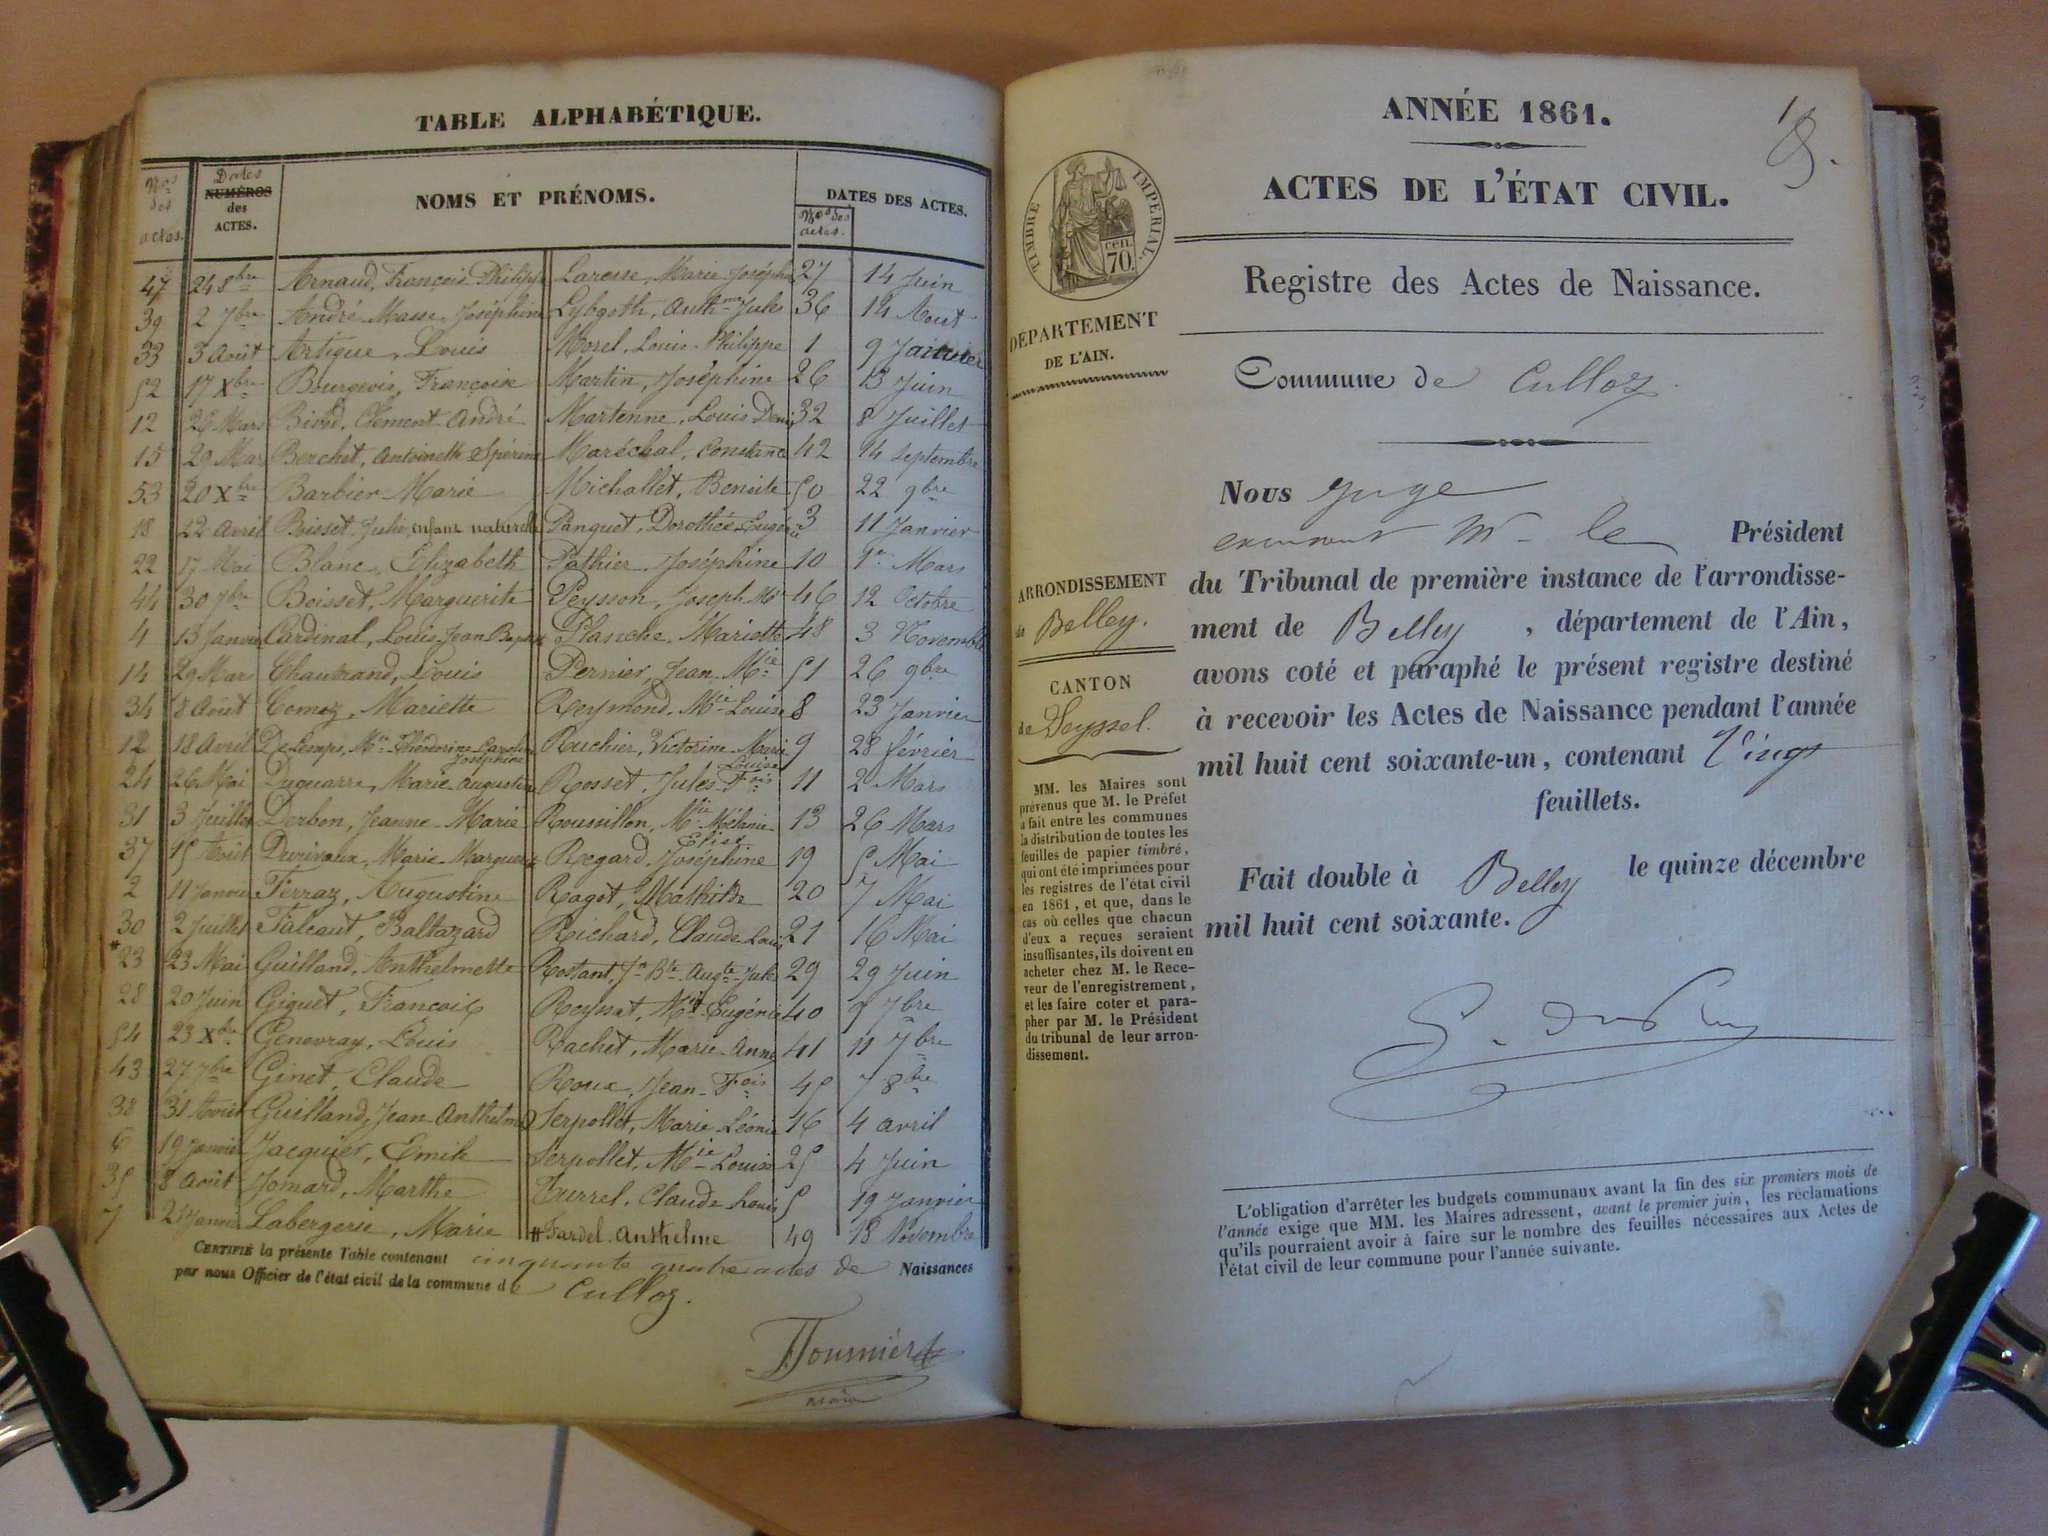 TABLE ALPHABÉTIQUE.
Nos des actes.
Dates
NUMÉROS
des
ACTES.
NOMS ET PRÉNOMS.
DATES DES ACTES.
Nos des actes.
47 24 8bre Arnaud, François Philippe Laresse, Marie Joséphe 27 14 Juin
39 2 7bre André Masse, Joséphine Lybgoth, Anth-me Jules 36 14 Aout
33 3 Août Artique, Louis Morel, Louis Philippe 1 9 Janvier
52 17 Xbre Bourgeois, Françoise Martin, Joséphine 26 13 Juin
12 26 Mars Clément André Martenne, Louis Denis 32 8 Juillet
15 29 Mars Berchet, Antoinette Spérine Maréchal, Constance 42 14 Septembre
53 20 Xbre Barbier Marie Michallet, Benoite 50 22 9bre
18 22 Avril Boisset Julie, enfant naturelle Panquet, Dorothée Eugénie 3 11 Janvier
22 17 Mai Blanc, Elizabeth Pathier, Joséphine 10 1er Mars
44 30 7bre Boisset, Marguerite Peysson, Joseph Mie 46 12 Octobre
4 13 Janvier Cardinal, Louis Jean Baptiste Planche, Mariette 48 3 Novembre
14 29 Mar Chautrand, Louis Pernier, Jean Mie 51 26 9bre
34 8 Août Comoz, Mariette Reymond, Mie Louise 8 23 Janvier
12 18 Avril Delemps, Mie Théodorine Caroline Joséphine Ruchier, Victorine Marie Louise 9 28 février
24 26 Mai Duquarre, Marie Augustine Rosset, Jules Fois 11 2 Mars
31 3 Juillet Derbon, Jeanne Marie Roussillon, Mie Mélanie 13 26 Mars
37 15 Août Marie Marguerite Regard, Joséphine Elise 19 5 Mai
2 11 Janvier Ferraz, Augustine Ragot, Mathilde 20 7 Mai
30 2 Juillet Falcaut, Baltazard Richard, Claude Louis 21 16 Mai
# 23 23 Mai Guilland, Anthelmette Rostant, Jn Bte Augte Jules 29 29 Juin
28 20 Juin Giguet, François Reyssat, Mie Eugénie 40 9 7bre
54 23 Xbre Genevray, Louis Rachet, Marie Anne 41 11 7bre
43 27 7bre Ginet, Claude Roux, Jean Fois 45 7 8bre
38 31 Août Guilland, Jean Anthelme Serpollet, Marie Léonie 16 4 avril
6 19 Janvier Jacquier, Emile Serpollet, Mie Louise 25 4 Juin
35 8 Août Jomard, Marthe Turrel, Claude Louis 5 19 Janvier
7 21 Janvier Labergerie, Marie # Fardel Anthelme 49 18 Novembre
CERTIFIÉ la présente Table contenant cinquante quatre actes de Naissances
par nous Officier de l'état civil de la commune de Culloz.
maire
ANNÉE 1861.
ACTES DE L'ÉTAT CIVIL.
TIMBRE IMPÉRIAL.
cen.
70.
Registre des Actes de Naissance.
DÉPARTEMENT
DE L'AIN.
Commune de Culloz
Nous Juge
M. le Président
du Tribunal de première instance de l'arrondisse-
ment de Belley, département de l'Ain,
avons coté et paraphé le présent registre destiné
à recevoir les Actes de Naissance pendant l'année
mil huit cent soixante-un, contenant Vingt
feuillets.
Fait double à Belley le quinze décembre
mil huit cent soixante.
ARRONDISSEMENT
de Belley.
CANTON
de Seyssel.
MM. les Maires sont
prévenus que M. le Préfet
a fait entre les communes
la distribution de toutes les
feuilles de papier timbré,
qui ont été imprimées pour
les registres de l'état civil
en 1861, et que, dans le
cas où celles que chacun
d'eux a reçues seraient
insuffisantes, ils doivent en
acheter chez M. le Rece-
veur de l'enregistrement,
et les faire coter et para-
pher par M. le Président
du tribunal de leur arron-
dissement.
L'obligation d'arrêter les budgets communaux avant la fin des six premiers mois de
l'année exige que MM. les Maires adressent, avant le premier juin, les réclamations
qu'ils pourraient avoir à faire sur le nombre des feuilles nécessaires aux Actes de
l'état civil de leur commune pour l'année suivante.